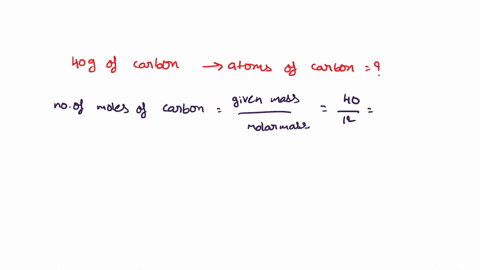 40g of carbon → atoms of carbon = ?
no. of moles of carbon = given mass / molar mass = 40 / 12 =